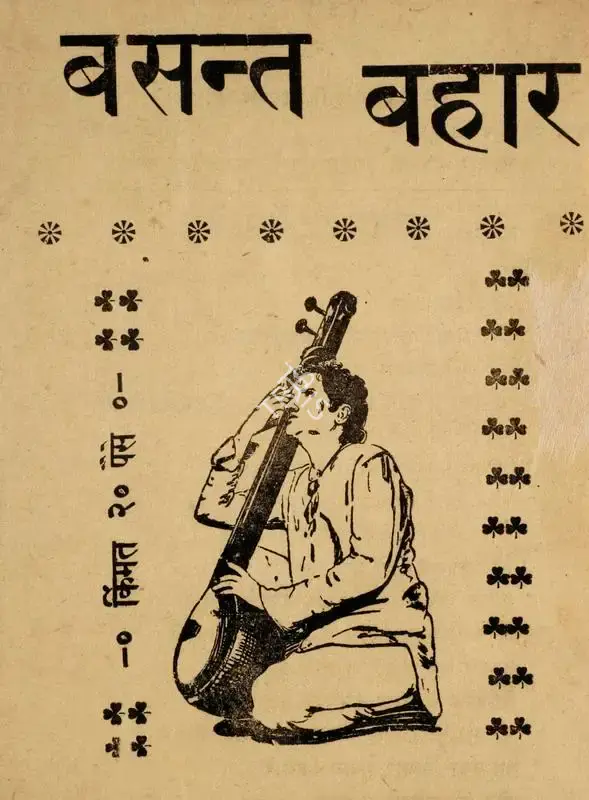 बसन्त बहार
–० किंमत २० पैसे ०–